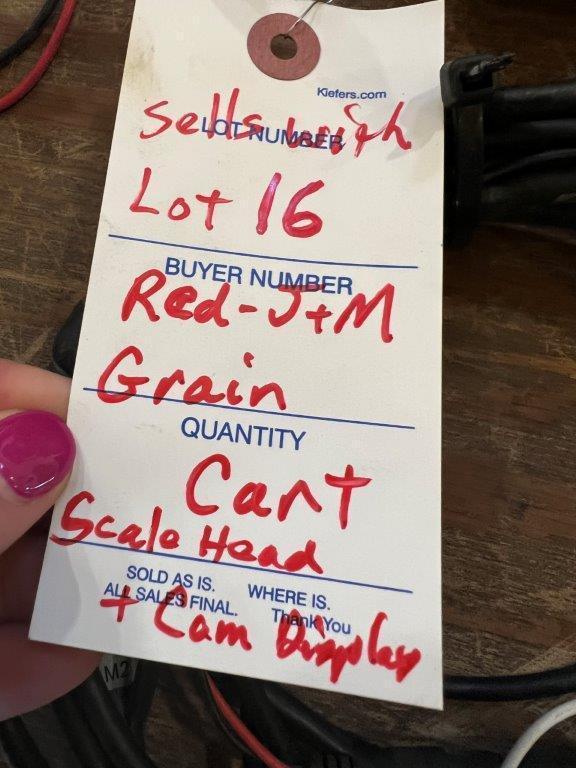 Kiefers.com
Sells with
LOT NUMBER
Lot 16
BUYER NUMBER
Red-J+M
Grain
QUANTITY
Cart
Scale Head
SOLD AS IS. WHERE IS.
ALL SALES FINAL. Thank You
+ Cam Display
M2